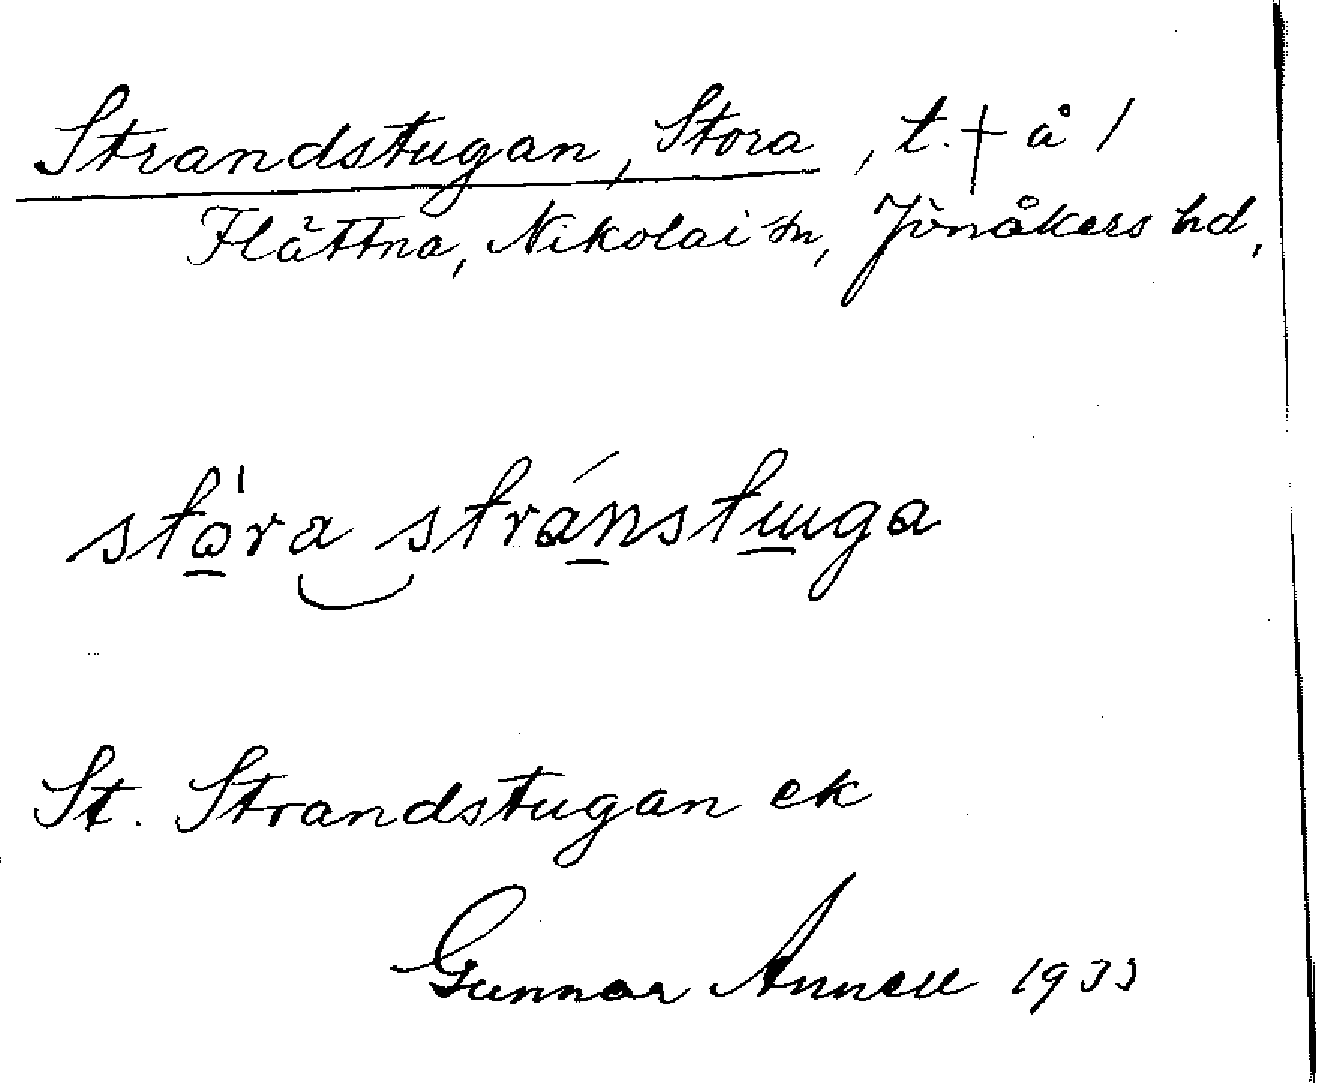 Strandstugan, Stora, t. † å 1
Hättna, Nikolai sn, Jönåkers hd,
stora stránstuga
St. Strandstugan ek
Gunnar Annell 1933